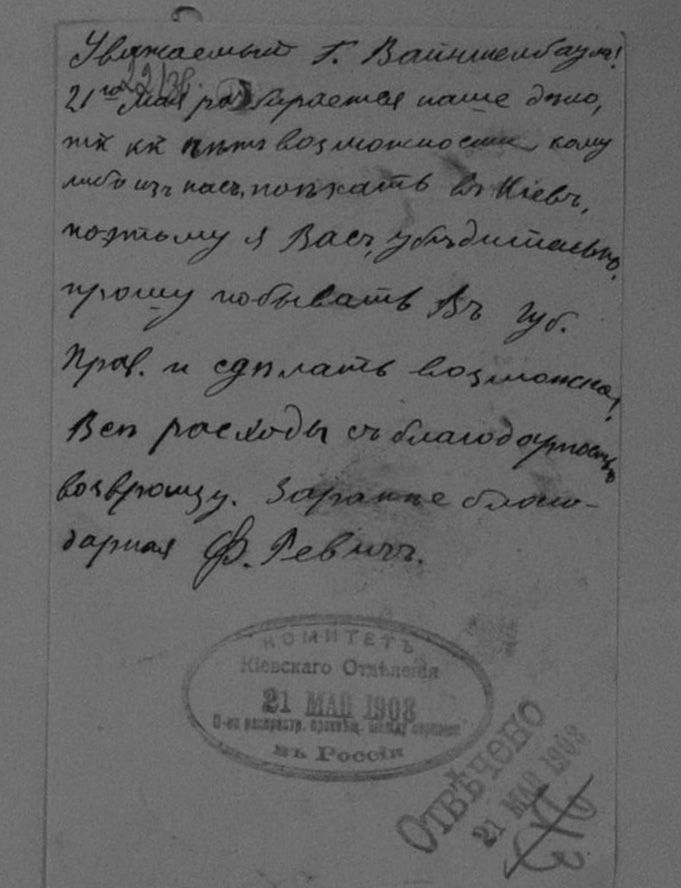 Уважаемый Г. Вайншелбаумъ!
22/38
21го Мая разбирается наше дѣло,
тк кк нѣтъ возможности кому
либо изъ насъ, поѣхать въ Кіевъ,
поэтому я Васъ, убѣдительно,
прошу побывать Въ Губ.
Прав. и сдѣлать возможное!
Всѣ расходы съ благодарностью
возврощу. Заранѣе благо-
дарная Ф. Ревичъ.
КОМИТЕТЪ
Кіевскаго Отдѣленія
21 МАЯ 1903
О-ва распростр. просвѣщ. между евреями
въ Россіи
ОТВѢЧЕНО
21 МАЯ 1903